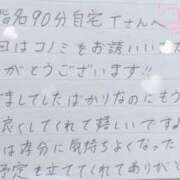 指名90分自宅Tさんへ
日はコノミをお誘いい
がとうございます!!
ましてしたばかりなのにもう
良くしてくれて嬉しいです
は存分に気持ちよくなった
予定を立ててくれてありが